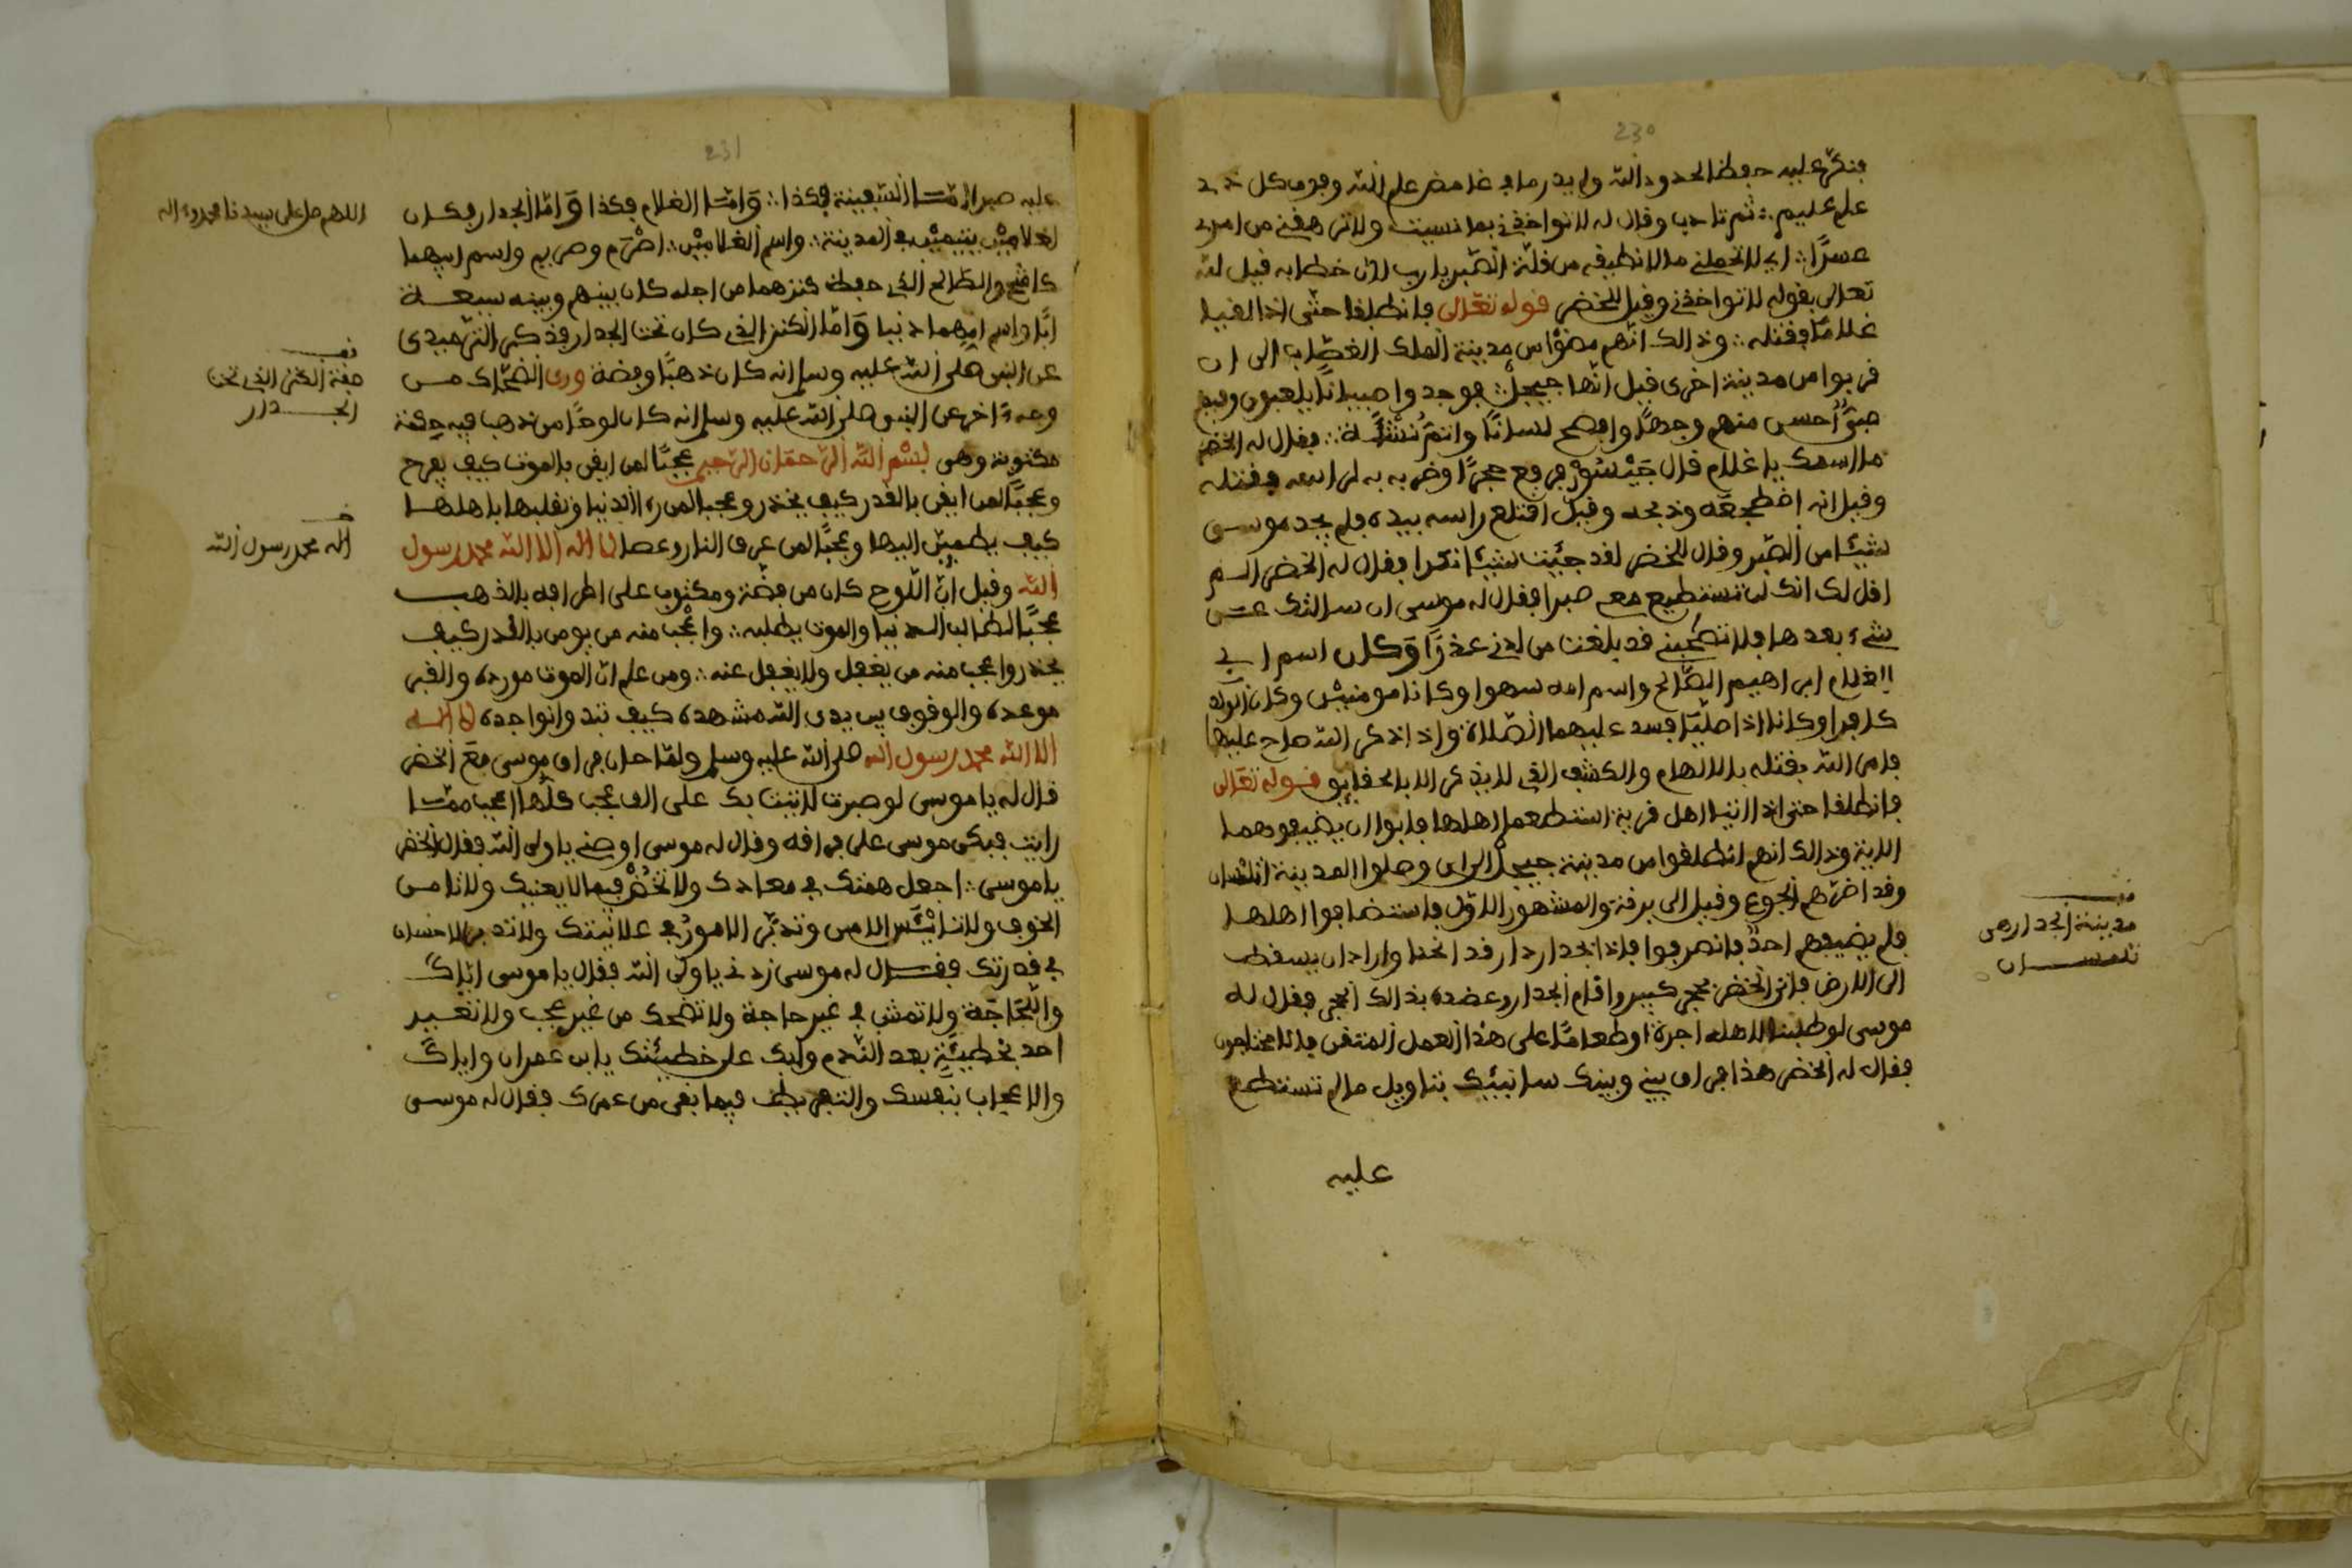 230
فتكرّ عليه حفظ الحدود الله ولم يدر ما في غامض علم الله وفوق كل ذي
علم عليم ∴ ثم تادب وقال له لا تواخذني بما نسيت ولا ترهقني من امري
عسرًا ∴ اي لا تحملني ما لا نطيقه من قلة الصّبر يا رب لان خطابه قيل لله
تعالى بقوله لا تواخذني وقيل للخضر قوله تعالى فانطلقا حتّى اذا لقيا
غلامًا فقتله ∴ وذالك انّهم مضوا من مدينة الملك الغصّاب الى ان
قربوا من مدينة اخرى قيل انّها جيجل ∴ فوجدوا صبيانًا يلعبون وفيهم
صبيٌّ احسن منهم وجهًا وافصح لسانًا واتمّ نشأة ∴ فقال له الخضر
ما اسمك يا غلام قال جيشور فرفع حجرًا وضربه به لراسه فقتله
وقيل انه اضطجعه وذبحه وقيل اقتلع راسه بيده فلم يجد موسى
شيئًا من الصّبر وقال للخضر لقد جئت شيئا نكرا فقال له الخضر الم
اقل لك انك لن تستطيع معي صبرا فقال له موسى ان سالتك عن
شيء بعدها فلا تصحبني قد بلغت من لدني عذرًا وكان اسم ابي
الغلام ابراهيم الصّالح واسم امه سهوا وكانا مومنين وكان الولد
كافرا وكانا اذا صلّيا فسد عليهما الصّلاة واذا ذكر الله صاح عليهما
فامر الله بقتله بالالهام والكشف الذي لا يذكر الا بالحقايق قوله تعالى
فانطلقا حتى اذا اتيا اهل قرية استطعما اهلها فابوا ان يضيفوهما
الاية وذالك انهم انطلقوا من مدينة جيجل الى ان وصلوا المدينة تلمسان
وقد اضرّهم الجوع وقيل الى برقة والمشهور الاوّل فاستضافوا اهلها
فلم يضيفهم احدٌ فانصرفوا فاذا بجدار دار قد انحنا واراد ان يسقط
الى الارض فاتى الخضر بحجر كبير واقام الجدار وعضده بذالك الحجر فقال له
موسى لو طلبنا لاهله اجرة او طعامًا على هذا العمل المتقن فانا محتاجون
فقال له الخضر هذا فراق بيني وبينك سانبيك بتاويل ما لم تستطع
عليه
قف
مدينة الجدار هي
تلمسان
231
عليه صبرا امّا السّفينة فكذا ∴ وامّا الغلام فكذا وامّا الجدار فكان
لغلامين يتيمين في المدينة ∴ واسم الغلامين ∴ اصرم وصريم واسم ابيهما
كاشح والصّالح الذي حفظ كنزهما من اجله كان بينهم وبينه سبعة
ابًا واسم امهما دنيا وامّا الكنز الذي كان تحت الجدار فذكر الترميدي
عن النبي صلى الله عليه وسلم انه كان ذهبًا وفضة وروى الضّحّاك من
وجه اخر عن النبي صلى الله عليه وسلم انه كان لوحًا من ذهب فيه حكمة
مكتوبة وهي بسم الله الرّحمان الرّحيم عجبًا لمن ايقن بالموت كيف يفرح
وعجبًا لمن ايقن بالقدر كيف يحذر وعجبا لمن رءا الدنيا وتقلبها باهلها
كيف يطمين اليها وعجبًا لمن عرف النار وعصا لا اله الا الله محمد رسول
الله وقيل انّ اللّوح كان من فضّة ومكتوب على اطرافه بالذهب
عجبًا لطالب الدنيا والموت يطلبه ∴ واعجب منه من يومن بالقدر كيف
يحذر واعجب منه من يغفل ولا يغفل عنه ∴ ومن علم انّ الموت مورده والقبر
موعده والوقوف بين يدي الله مشهده كيف تبد وانواجده لا اله
الا الله محمد رسول الله صلى الله عليه وسلم ولمّا حان فراق موسى مع الخضر
قال له يا موسى لو صبرت لاتيت بك على الف عجب كلّها اعجب ممّا
رايت فبكى موسى على فراقه وقال له موسى اوصني يا ولي الله فقال الخضر
يا موسى ∴ اجعل همّتك في معادك ولا تخض فيما لا يعنيك ولا تامن
الخوف ولا تايئس الامن وتدبّر الامور في علانيتك ولا تدر الاحسان
في قدرتك فقال له موسى زدني يا وليّ الله فقال يا موسى ايّاك
واللّجاجة ولا تمش في غير حاجة ولا تضحك من غير عجب ولا تعير
احد بخطيئة بعد النّدم وابك على خطيئتك يا بن عمران وايّاك
والاعجاب بنفسك والتفريط فيما بقى من عمرك فقال له موسى
اللهم صل على سيدنا محمد وءاله
قف
صفة الكنز الذي تحت
الجدار
قف
اله محمد رسول الله